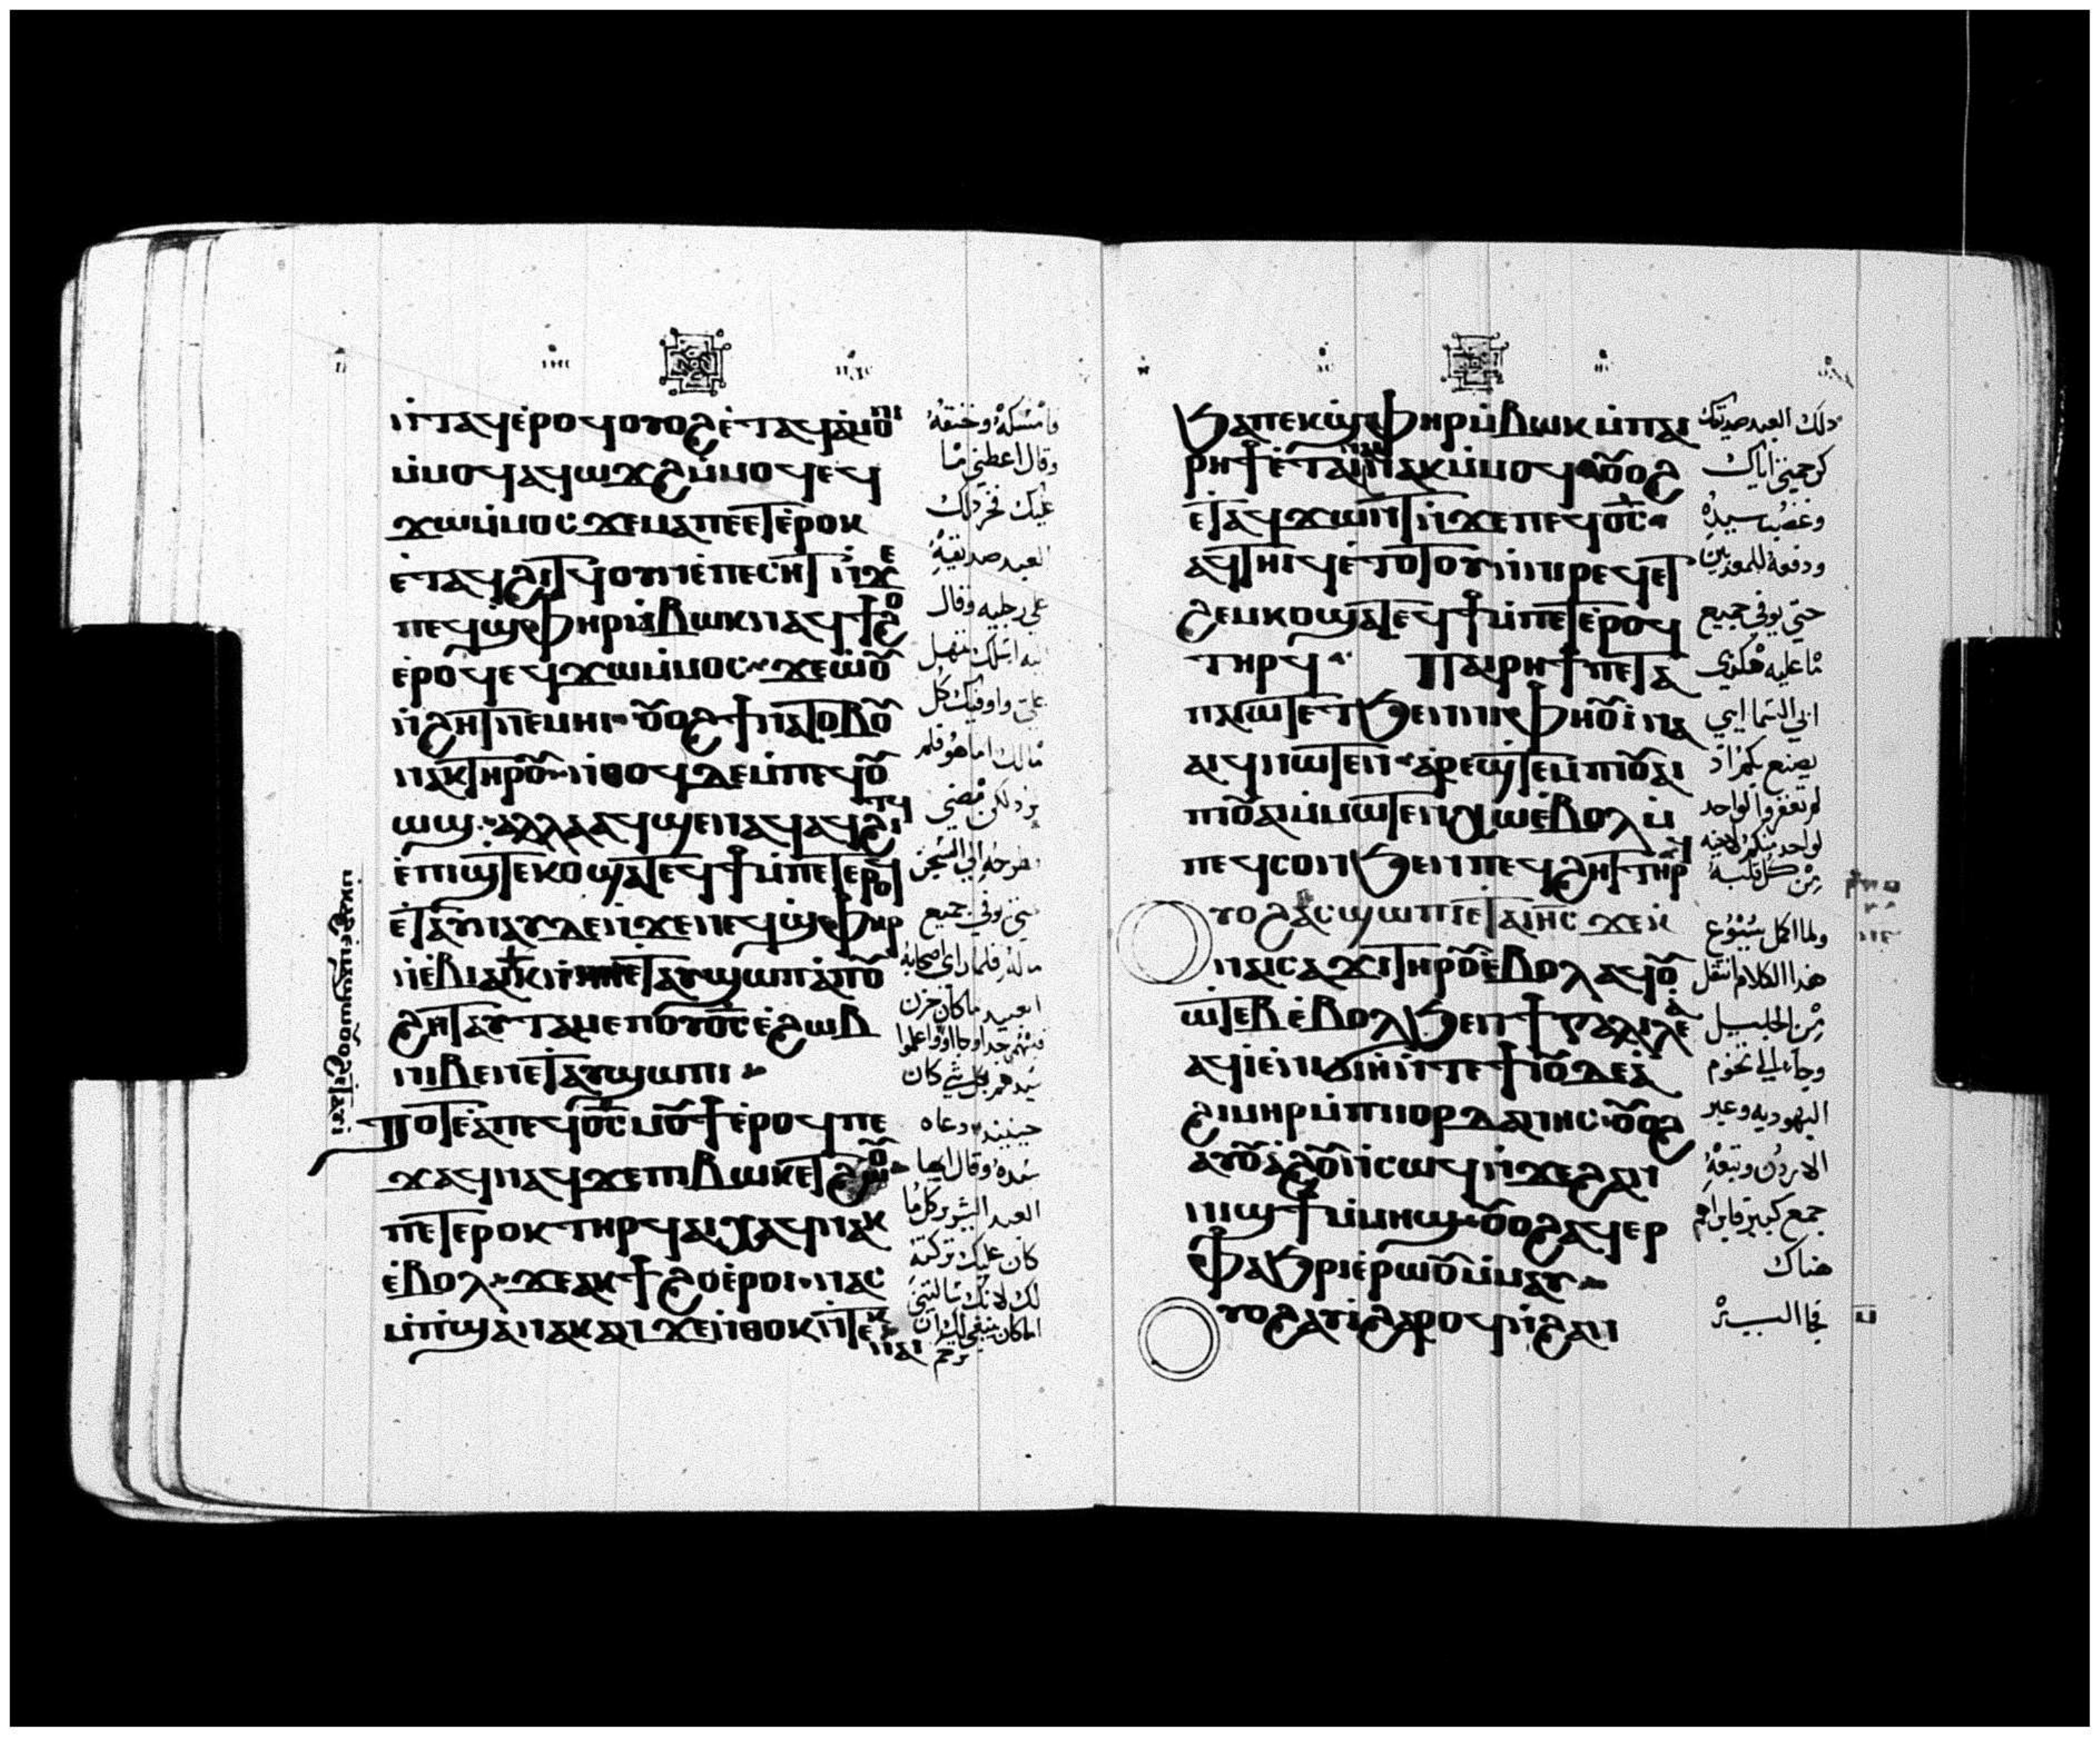 ⲛ̇ⲧⲁϥ ⲉ̇ⲣⲟϥ ⲟⲩⲟϩ ⲉ̇ⲧⲁϥⲁ̇ⲙⲟⲛⲓ
ⲙ̇ⲙⲟϥ ⲁϥⲱϫϩ ⲙ̇ⲙⲟϥ ⲉϥ
ϫⲱ ⲙ̇ⲙⲟⲥ ϫⲉ ⲙⲁ ⲡⲉⲉⲧⲉ̇ⲣⲟⲕ
ⲉ̇ⲧⲁϥϩⲓⲧϥ ⲟⲩⲛ ⲉ̇ⲡⲉⲥⲏⲧ ⲛ̇ϫⲉ
ⲡⲉϥϣ̇ⲫⲏⲣ ⲙ̇ⲃⲱⲕ ⲛⲁϥϯϩⲟ
ⲉ̇ⲣⲟϥ ⲉϥϫⲱ ⲙ̇ⲙⲟⲥ ϫⲉ ⲱ̇ⲟⲩ
ⲛ̇ϩⲏⲧ ⲛⲉⲙⲏⲓ ⲟⲩⲟϩ ϯⲛⲁⲧⲟⲃⲟⲩ
ⲛⲁⲕ ⲧⲏⲣⲟⲩ ⲛ̇ⲑⲟϥ ⲇⲉ ⲙ̇ⲡⲉϥⲟⲩ
ⲱϣ ⲁⲗⲗⲁ ⲁϥϣⲉⲛⲁϥ ⲁϥϩⲓⲧϥ
ⲉ̇ⲡⲓϣ̇ⲧⲉⲕⲟ ϣⲁⲧⲉϥϯ ⲙ̇ⲡⲉⲧⲉⲣⲟϥ
ⲉ̇ⲧⲁⲩⲛⲁⲩ ⲇⲉ ⲛ̇ϫⲉ ⲛⲉϥϣ̇ⲫⲏⲣ
ⲛ̇ⲉ̇ⲃⲓⲁⲓⲕ ⲉⲧⲁⲩϣⲱⲡⲓ ⲁ̇ⲡⲟⲩ
ϩⲏⲧ ⲁⲩⲧⲁⲙⲉ ⲡⲟⲩⲟ̅ⲥ̅ ⲉ̇ϩⲱⲃ
ⲛⲓⲃⲉⲛ ⲉⲧⲁⲩϣⲱⲡⲓ
ⲧⲟⲧⲉ ⲁ̇ ⲡⲉϥⲟ̅ⲥ̅ ⲙⲟⲩϯ ⲉ̇ⲣⲟϥ ⲡⲉ
ϫⲁϥ ⲛⲁϥ ϫⲉ ⲡⲓⲃⲱⲕ ⲉⲧϩⲱⲟⲩ
ⲡⲉⲧⲉⲣⲟⲕ ⲧⲏⲣϥ ⲁⲓⲭⲁϥ ⲛⲁⲕ
ⲉ̇ⲃⲟⲗ ϫⲉ ⲁⲕϯϩⲟ ⲉ̇ⲣⲟⲓ ⲛⲁⲥ
ⲙ̇ⲡϣⲁ ⲛⲁⲕ ⲁⲛ ϫⲉ ⲛ̇ⲑⲟⲕ ⲛ̇ⲧⲉⲕ
ⲛⲁⲓ
ⲙ̇ⲕⲁϩ ⲉ̇ⲙⲁϣⲱ ⲟⲩⲟϩ ⲉ̇ⲧⲁⲩⲓ̇
فامسكه وخنقه
وقال اعطني ما
عليك فخر ذلك
العبد صديقه
على رجليه وقال
علي واوفيك كل
مالك اما هو فلم
يرد لكن مضى
حتى يوفي جميع
ماله فلما راى اصحابه
العبيد ما كان حزن
سيدهم بكل شي كان
حينيذ دعاه
سيده وقال ايها
العبد الشرير كل ما
كان عليك تركته
لك لانك سالتني
اما كان ينبغي لك ان
ترحم
ϧⲁ ⲡⲉⲕϣ̇ⲫⲏⲣ ⲙ̇ⲃⲱⲕ ⲙ̇ⲡⲁⲓ
ⲣⲏϯ ⲉ̇ⲧⲁⲓⲛⲁⲓ ⲛⲁⲕ ⲙ̇ⲙⲟϥ ⲟⲩⲟϩ
ⲉ̇ⲧⲁϥϫⲱⲛⲧ ⲛ̇ϫⲉ ⲡⲉϥⲟ̅ⲥ̅
ⲁϥⲧⲏⲓϥ ⲉ̇ⲧⲟⲧⲟⲩ ⲛ̇ⲛⲓⲣⲉϥⲉⲧ
ϩⲉⲙⲕⲟ ϣⲁⲧⲉϥϯ ⲙ̇ⲡⲉⲧⲉ̇ⲣⲟϥ
ⲧⲏⲣϥ ⲡⲁⲓⲣⲏϯ ⲡⲉⲧⲁ
ⲡⲁⲓⲱⲧ ⲉⲧϧⲉⲛ ⲛⲓⲫⲏⲟⲩⲓ̇ ⲛⲁ
ⲁⲓϥ ⲛⲱⲧⲉⲛ ⲁⲣⲉϣ̇ⲧⲉⲙ ⲡⲓⲟⲩⲁⲓ
ⲡⲓⲟⲩⲁⲓ ⲙ̇ⲙⲱⲧⲉⲛ ⲭⲱ ⲉ̇ⲃⲟⲗ ⲙ̇
ⲡⲉϥⲥⲟⲛ ϧⲉⲛ ⲡⲉϥϩⲏⲧ ⲧⲏⲣϥ
ⲩⲟϩ ⲁⲥϣⲱⲡⲓ ⲉⲧⲁ ⲓⲏ̅ⲥ̅ ϫⲉⲕ
ⲛⲁⲓⲥⲁϫⲓ ⲧⲏⲣⲟⲩ ⲉ̇ⲃⲟⲗ ⲁϥⲟⲩ
ⲱ̇ⲧⲉⲃ ⲉ̇ⲃⲟⲗ ϧⲉⲛ ϯⲅⲁⲗⲓⲗⲉⲁ̇
ⲁϥⲓ̇ ⲉ̇ⲛⲓϭⲓⲏ̇ ⲛ̇ⲧⲉ ϯⲓⲟⲩⲇⲉⲁ̇
ϩⲓⲙⲏⲣ ⲙ̇ⲡⲓⲓⲟⲣⲇⲁⲛⲏⲥ ⲟⲩⲟϩ
ⲁⲩⲟⲩⲁ̇ϩⲟⲩ ⲛ̇ⲥⲱϥ ⲛ̇ϫⲉ ϩⲁⲛ
ⲛⲓϣϯ ⲙ̇ⲙⲏϣ ⲟⲩⲟϩ ⲁϥⲉⲣ
ⲫⲁϧⲣⲓ ⲉ̇ⲣⲱⲟⲩ ⲙ̇ⲙⲁⲩ
ⲩⲟϩ ⲁⲩⲓ̇ ϩⲁⲣⲟϥ ⲛ̇ϩⲁⲛ
ذلك العبد صديقك
كرحمتي اياك
وغضب سيده
ودفعه للمعذبين
حتى يوفي جميع
ما عليه هكذي
ابي السماايي
يصنع بكم اذ
لم تغفروا لواحد
لواحد منكم لاخيه
من كل قلبه
ولما اكمل يسوع
هذا الكلام انتقل
من الجليل
وجا الى تخوم
اليهوديه وعبر
الاردن وتبعه
جمع كبير فابراهم
هناك
فجا اليه